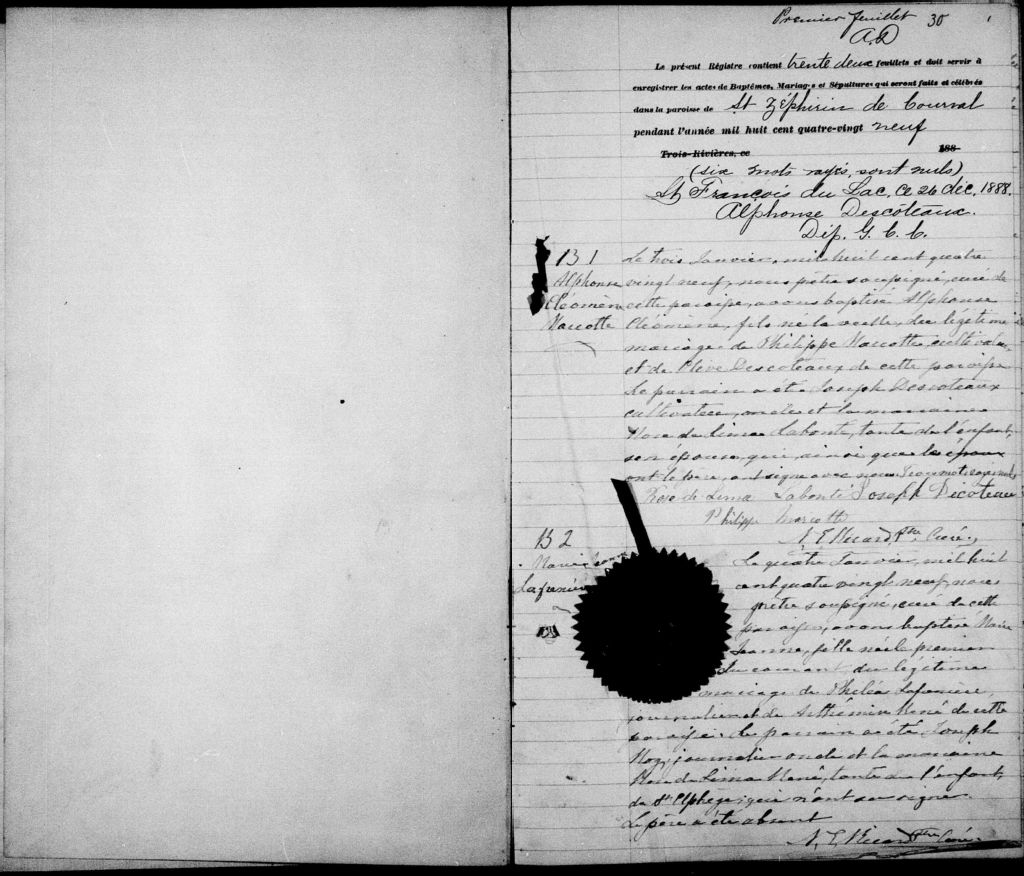 Premier feuillet 30
A.D
Le présent Régistre contient trente deux feuillets et doit servir à
enregistrer les actes de Baptêmes, Mariages et Sépultures qui seront faits et célébrés
dans la paroisse de St Zéphirin de Courval
pendant l'année mil huit cent quatre-vingt neuf
Trois-Rivières, ce 188
(six mots rayés, sont nuls)
St François du Lac, Ce 26 déc. 1888.
Alphonse Descôteaux.
Dép. G. C. C.
B 1
Alphonse
Cléomène
Marcotte
Le trois Janvier, mil huit cent quatre
vingt neuf, nous prêtre soussigné, curé de
cette paroisse, avons baptisé Alphonse
Cléomène, fils né la veille, du légitime
mariage de Philippe Marcotte, cultivateur
et de Descoteaux de cette paroisse
Le parrain a été Joseph Descoteaux
cultivateur, oncle et la marraine
Rose de Lima Labonté, tante de l'enfant,
son épouse, qui, ainsi que le époux
ont le père, ont signé avec nous
Rose de Lima Labonté Joseph Décoteau
Philippe Marcotte
Ptre Curé.
B 2
Marie Jeanne
Lafrenière
Le quatre Janvier, mil huit
cent quatre vingt neuf, nous
prêtre soussigné, curé de cette
paroisse, avons baptisé Marie
Jeanne, fille née le premier
du courant, du légitime
mariage de Philéas Lafrenière,
journalier et de Arthémise René de cette
paroisse. Le parrain a été Joseph
journalier oncle et la marraine
Rose de Lima René, tante de l'enfant,
de St Elphège, qui n'ont su signer.
Le père a été absent
Ptre Curé.